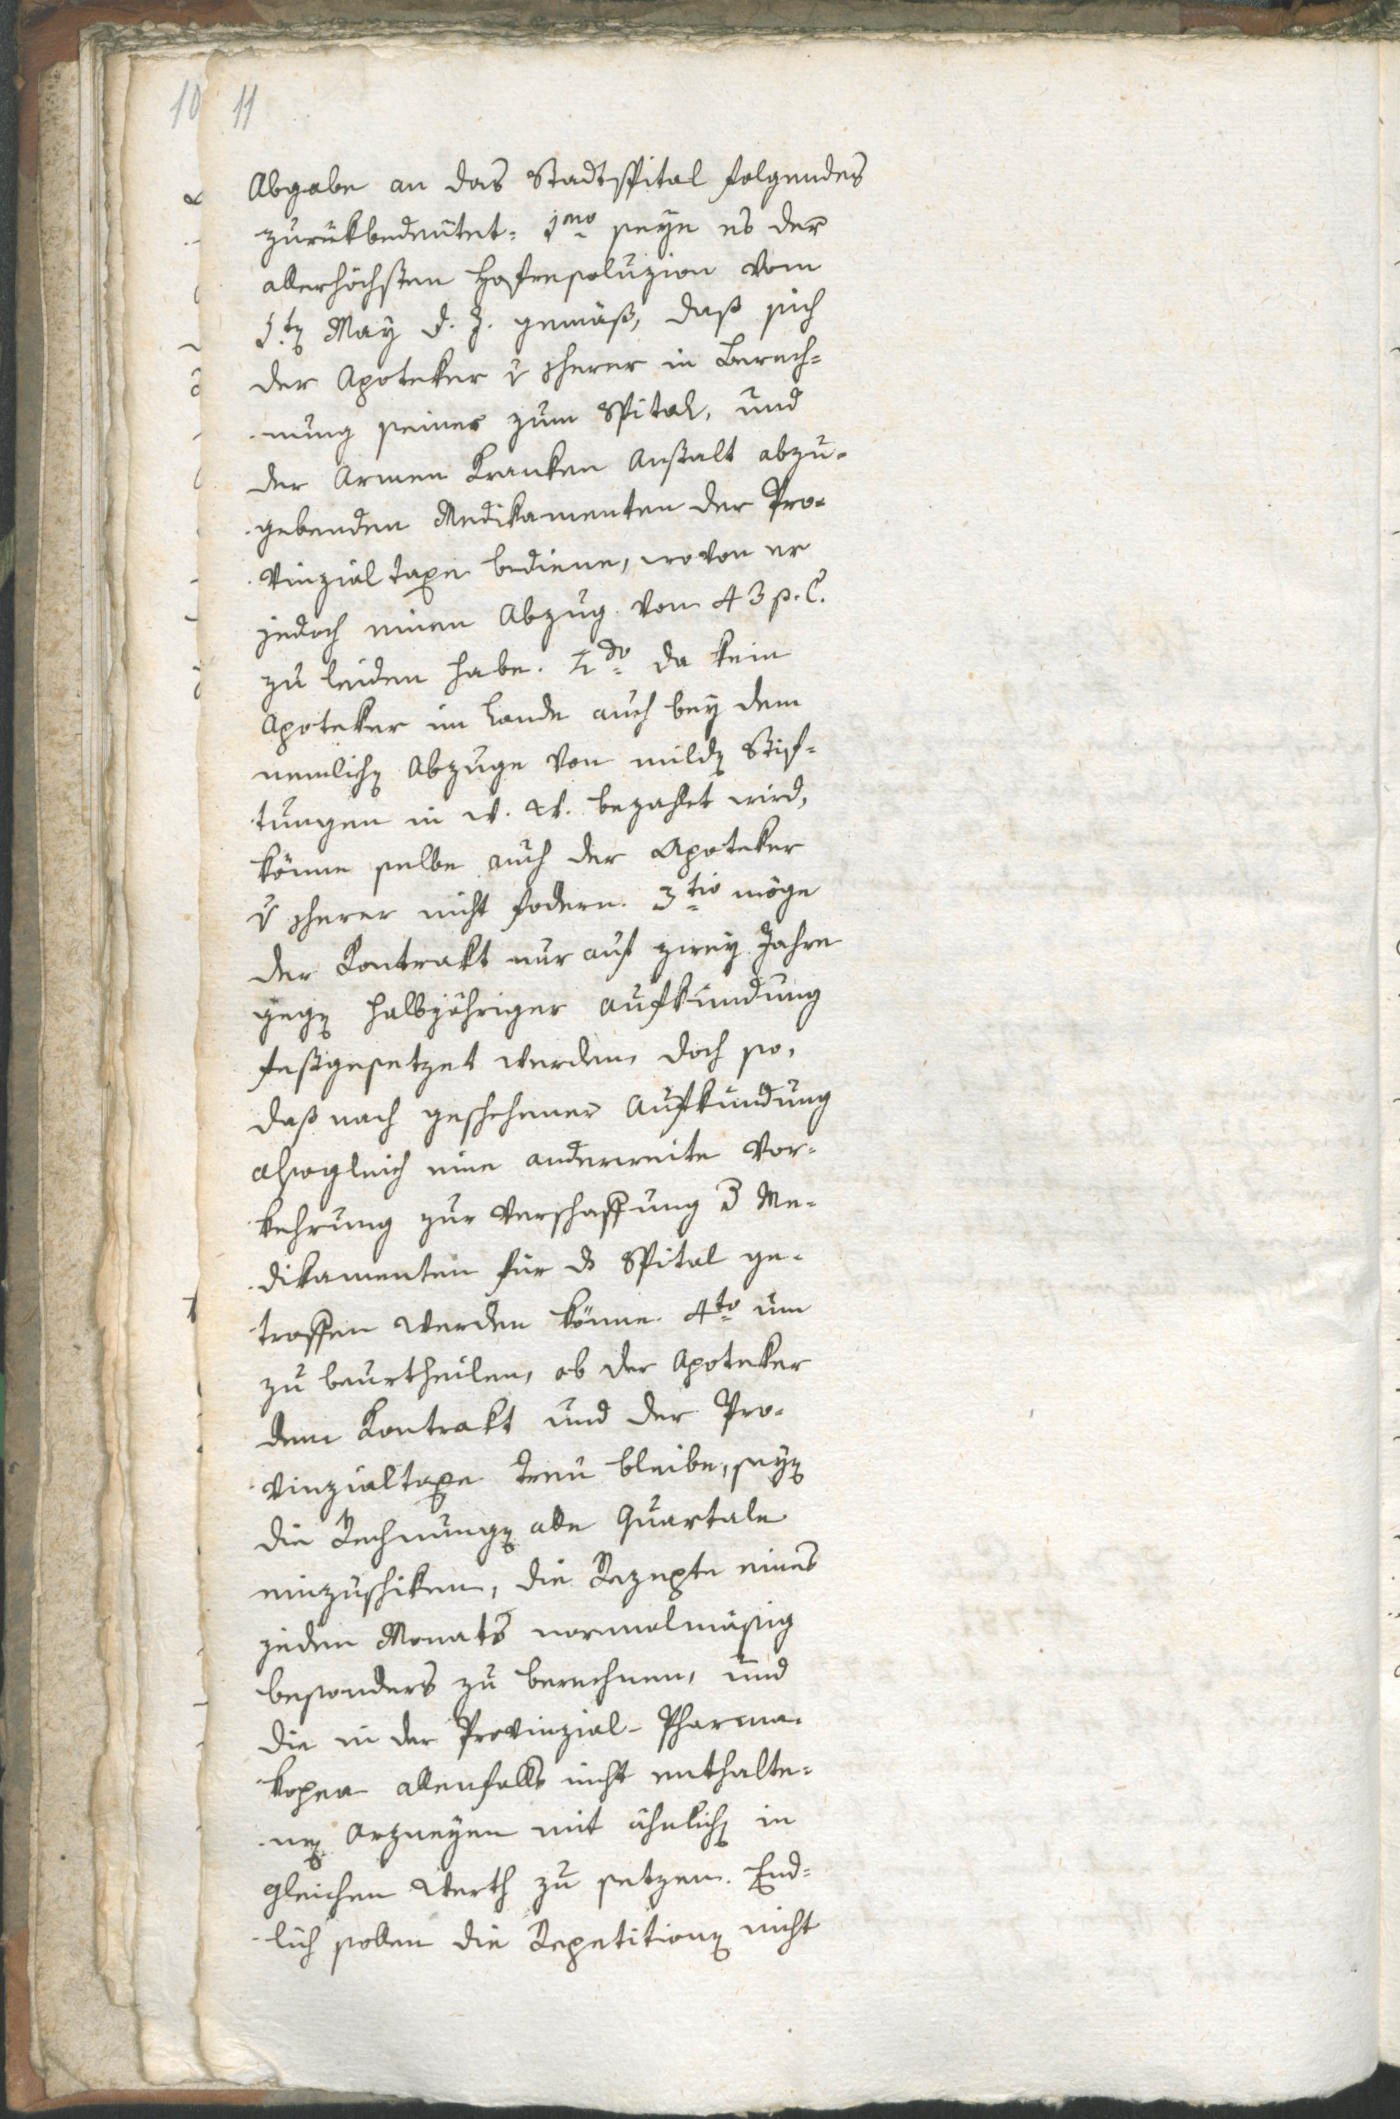 10 11
Abgabe an das Stadtspital folgendes
zurükbedeutet: 1mo seye es der
allerhöchsten Hofresoluzion vom
1.ten May d. J. gemäß, daß sich
der Apoteker in Berech=
nung seiner zum Spital, und
der Armen Kranken Anstalt abzu=
gebenden Medikamenten der Pro=
vinzial Taxe bediene, wovon er
jedoch einen Abzug von 43 p. C.
zu leiden habe. 2do da kein
Apoteker im Lande auch bey dem
nemlichen Abzuge von milden Stif=
tungen in bezahlet wird,
könne selbe auch der Apoteker
nicht fodern. 3tio möge
der Kontrakt nur auf zwey Jahre
gegen halbjähriger Aufkündung
festgesetzet werden, doch so,
daß nach geschehener Aufkündung
alsogleich eine anderweite Vor=
kehrung zur Verschaffung d Me=
dikamenten für ds Spital ge=
troffen werden könne. 4to um
zu beurtheilen, ob der Apoteker
dem Kontrakt und der Pro=
vinzialtaxe treu bleibe, seyen
die Rechnungen alle Quartale
einzuschiken, die Rezepte eines
jeden Monats normalmäßig
besonders zu berechnen, und
die in der Provinzial-Pharma=
kopea allenfalls nicht enthalte=
nen Arzneyen mit ähnlichen in
gleichen Werth zu setzen. End=
lich sollen die Repetitionen nicht